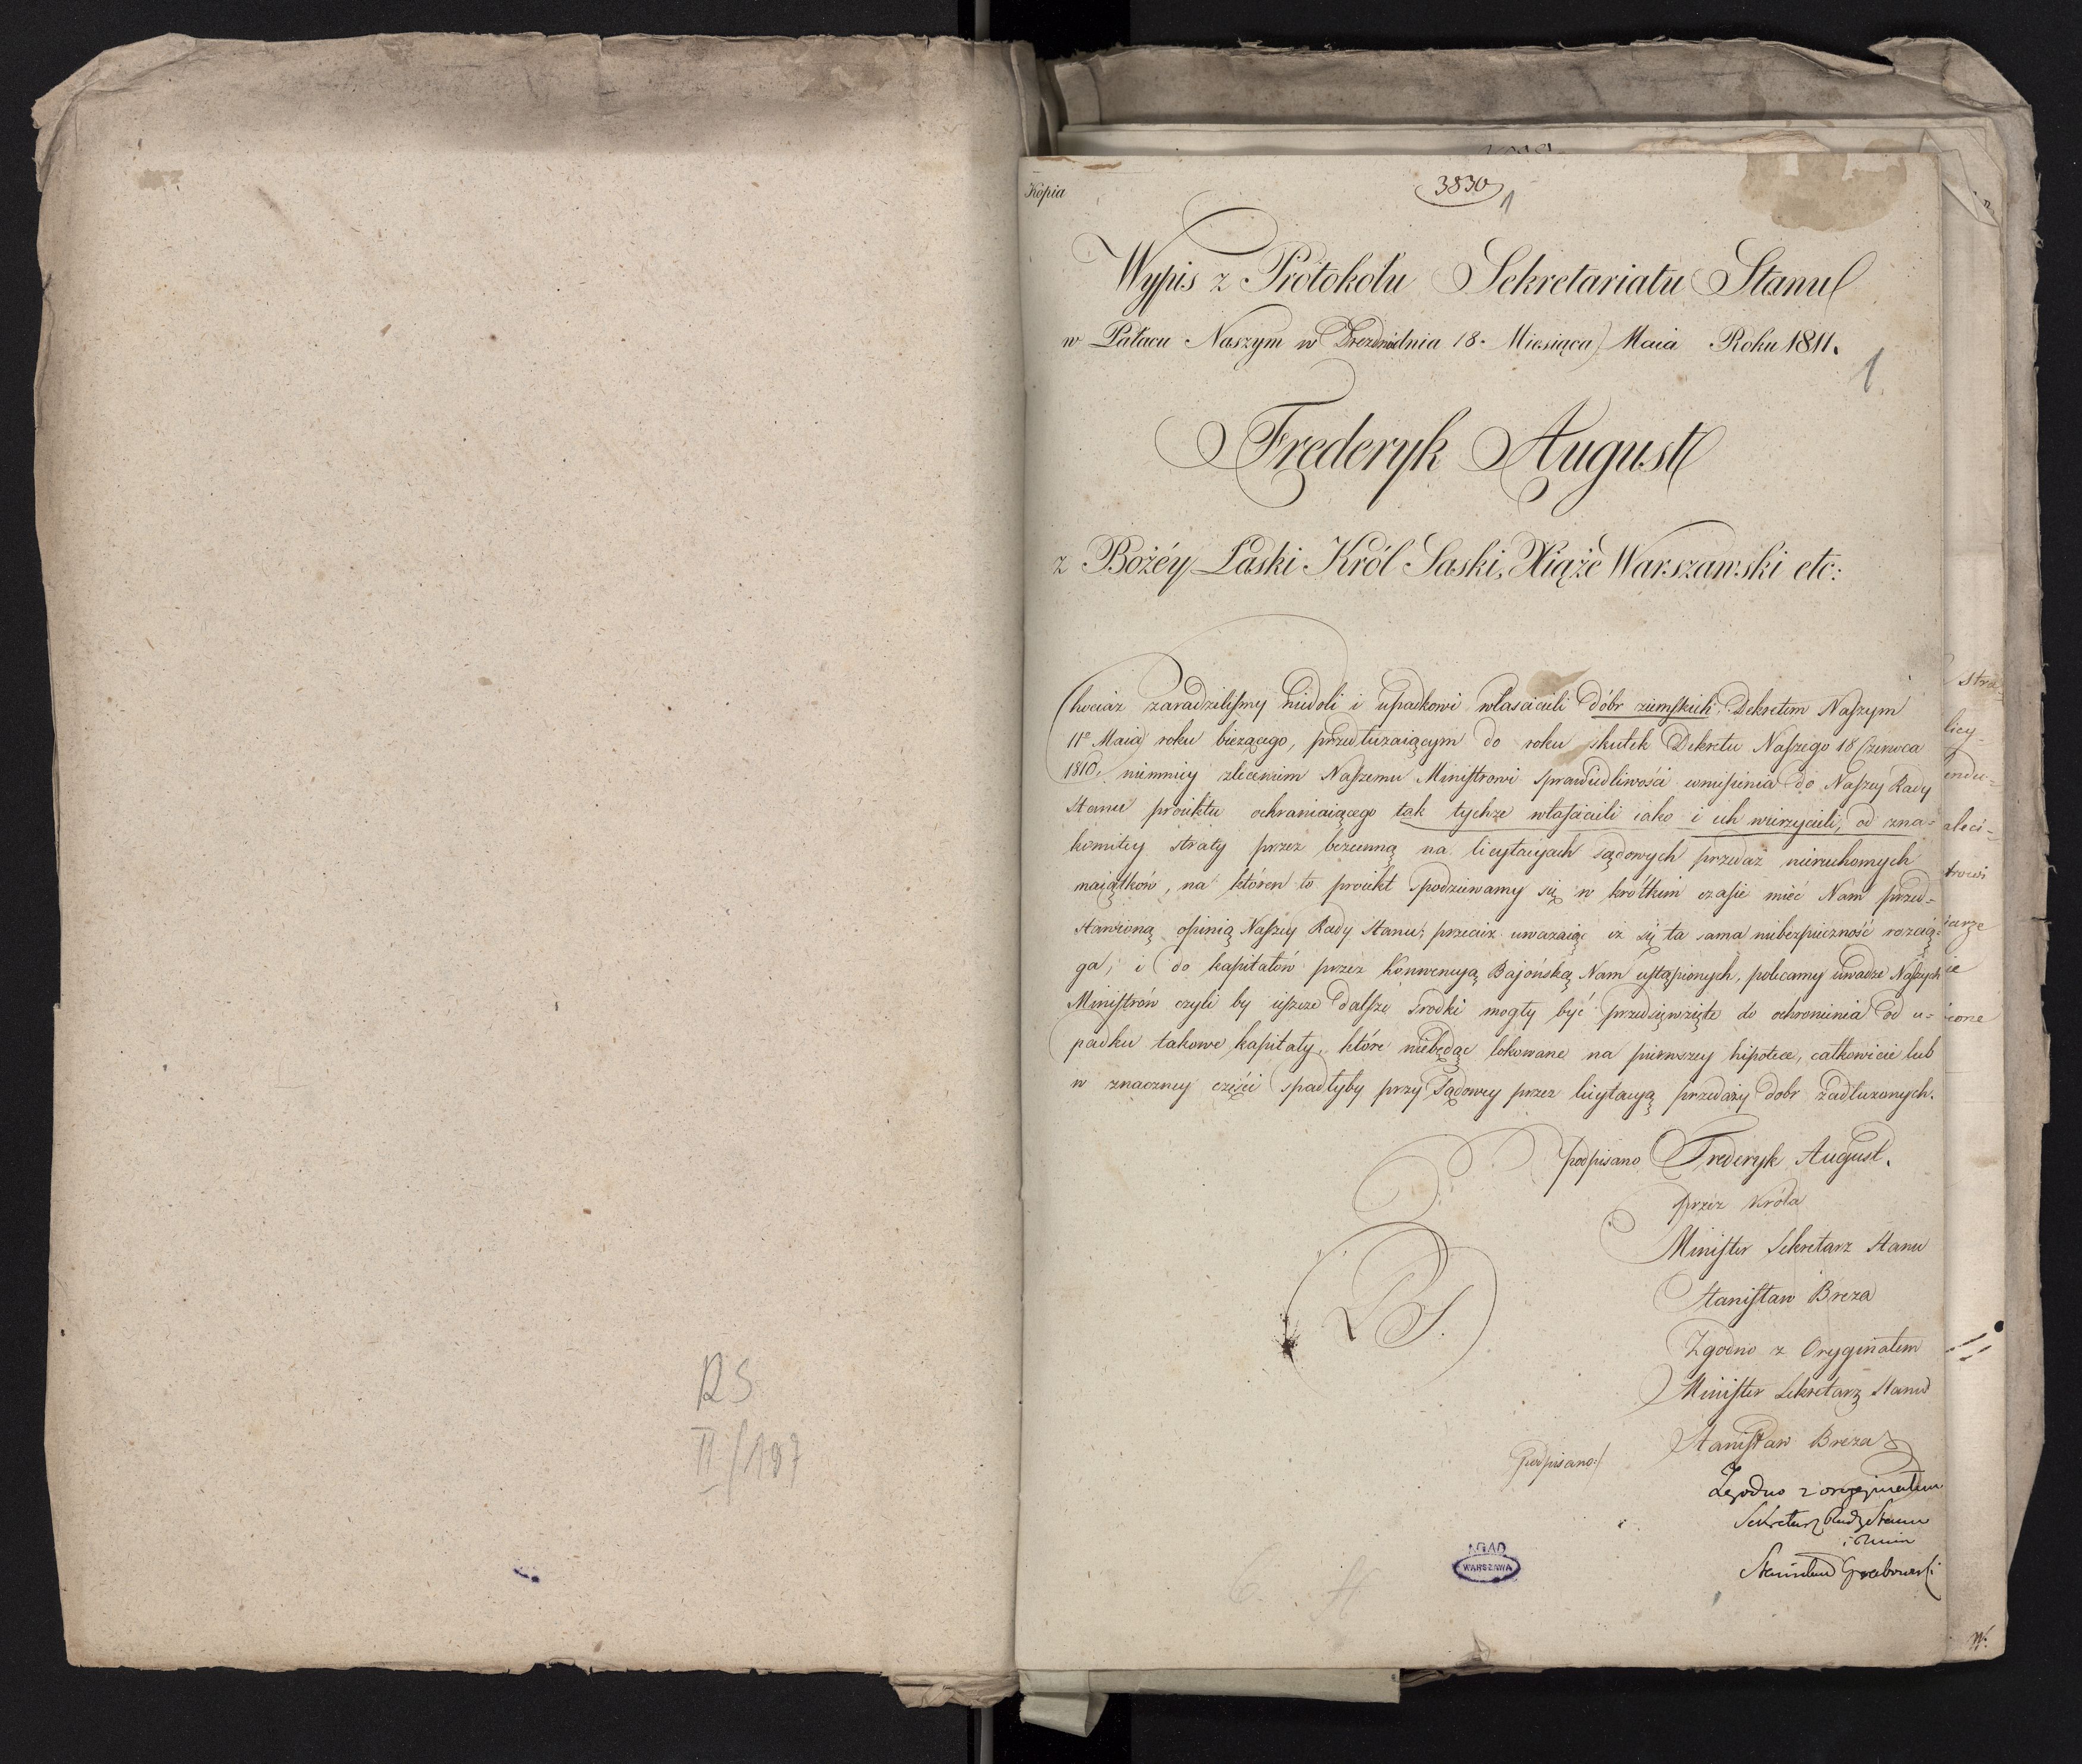 RS
II/197
Kopia
3830
1
Wypis z Protokołu Sekretariatu Stanu
w Pałacu Naszym w Dreznie dnia 18. Miesiąca Maia Roku 1811.
1
Frederyk August
z Bożéy Łaski Król Saski, Xiąże Warszawski etc:
Chociaż zaradziliſmy niedoli i upadkowi własciecieli dóbr ziemſkich Dekretem Naſzym
11º Maia roku bieżącego, przedłużaiącym do roku skutek Dekretu Naſzego 18 Czerwca
1810, niemniey zleceniem Naſzemu Miniſtrowi Sprawiedliwości wnieſienia do Naſzey Rady
Stanu proiektu ochraniaiącego tak tychże właſcicieli iako i ich wierzycieli, od zna=
komitey straty przez bezcenną na licytacyach sądowych przedaż nieruchomych
maiątków, na któren to proiekt spodziewamy się w krótkim czaſie mieć Nam przed=
stawioną opinią Naſzey Rady Stanu; przecież uważaiąc iż się ta sama niebeſpieczność rozcią=
ga, i do kapitałów przez Konwencyą Bajońską Nam uſtąpionych, polecamy uwadze Naſzych
Miniſtrów czyli by ieſzcze dalſze srodki mogły być przedsięwzięte do ochronienia od u=
padku takowe kapitały, które niebędąc lokowane na pierwszey hipotece, całkowicie lub
w znaczney części spadłyby przy Sądowey przez licytacyą przedaży dobr zadłużonych.
podpisano Frederyk August.
przez Króla
Miniſter Sekretarz Stanu
Staniſław Breza
L S.
Zgodno z Oryginałem
Miniſter Sekretarz Stanu
podpisano:/ Staniſław Breza
Zgodno z oryginałem
Sekretarz Rady Stanu
Stanisław Grabowski
AGAD
WARSZAWA
stra=
licy=
endu=
aleci=
trowi
iarze
ie
ione
W.